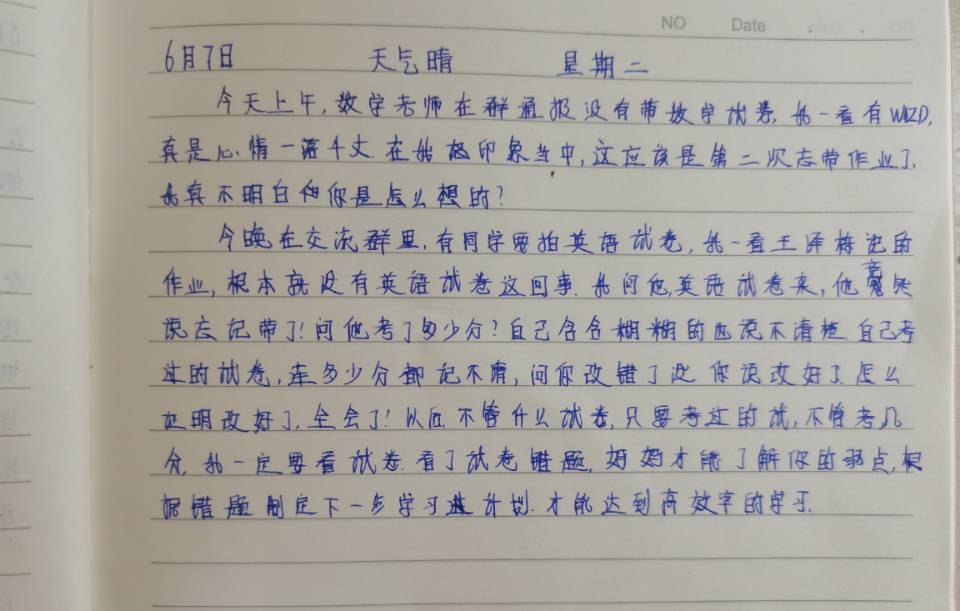 NO Date
6月7日 天气晴 星期二
今天上午,数学老师在群通报没有带数学试卷,我一看有WZD,
真是心情一落千丈.在我的印象当中,这应该是第二次忘带作业了,
我真不明白你是怎么想的?
今晚在交流群里,有同学要拍英语试卷,我一看王泽栋记的
作业,根本就没有英语试卷这回事.我问他,英语试卷来,他竟然
说忘记带了!问他考了多少分?自己含含糊糊的也说不清楚.自己考
过的试卷,连多少分都记不清,问你改错了没 你说改好了.怎么
证明改好了,全会了!以后不管什么试卷,只要考过的试,不管考几
分,我一定要看试卷.看了试卷错题,妈妈才能了解你的弱点,根
据错题制定下一步学习计划.才能达到高效率的学习.